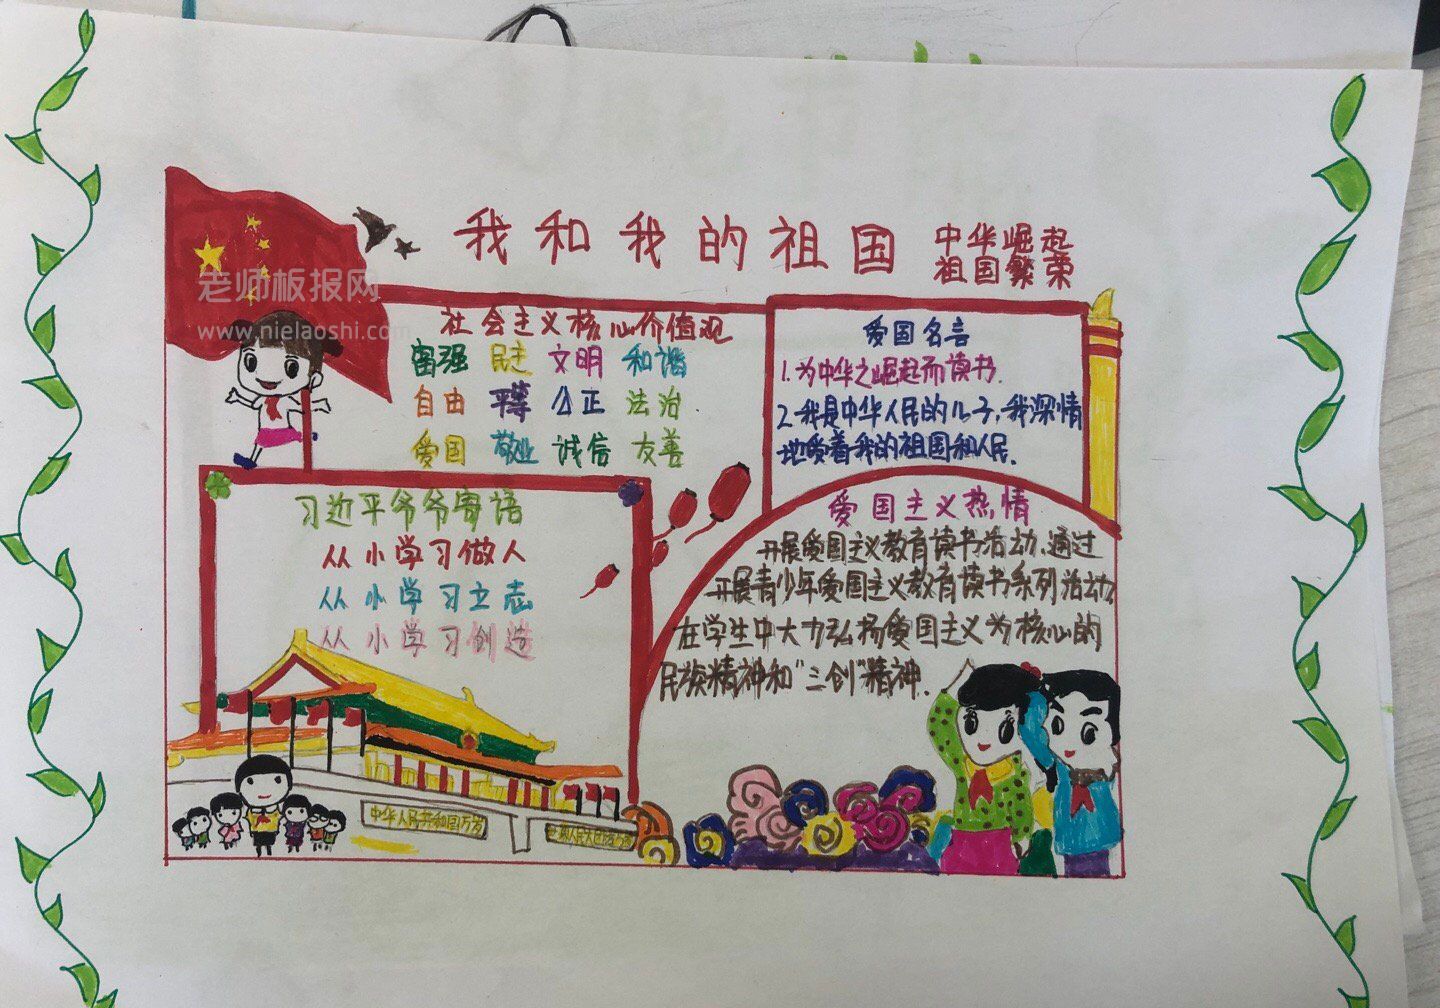 我和我的祖国
中华崛起
祖国繁荣
老师板报网
www.nielaoshi.com
社会主义核心价值观
富强 民主 文明 和谐
自由 平等 公正 法治
爱国 敬业 诚信 友善
爱国名言
1.为中华之崛起而读书.
2.我是中华人民的儿子,我深情
地爱着我的祖国和人民.
习近平爷爷寄语
从小学习做人
从小学习立志
从小学习创造
爱国主义热情
开展爱国主义教育读书活动、通过
开展青少年爱国主义教育读书系列活动
在学生中大力弘扬爱国主义为核心的
民族精神和"三创"精神.
中华人民共和国万岁